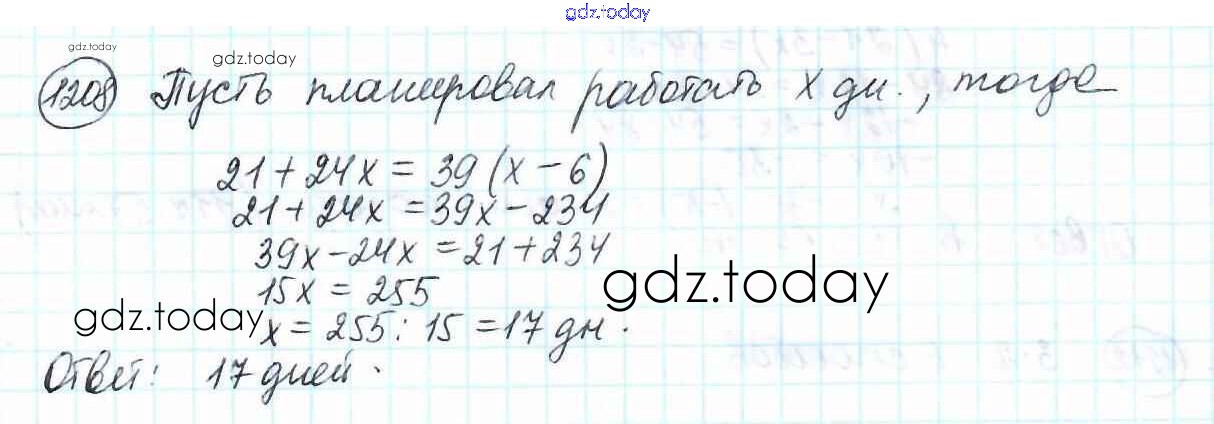 gdz.today
gdz.today
gdz.today
1208 Пусть планировал работать x дн., тогда
21 + 24x = 39(x - 6)
21 + 24x = 39x - 234
39x - 24x = 21 + 234
15x = 255
gdz.today
gdz.today
x = 255 : 15 = 17 дн.
Ответ: 17 дней.